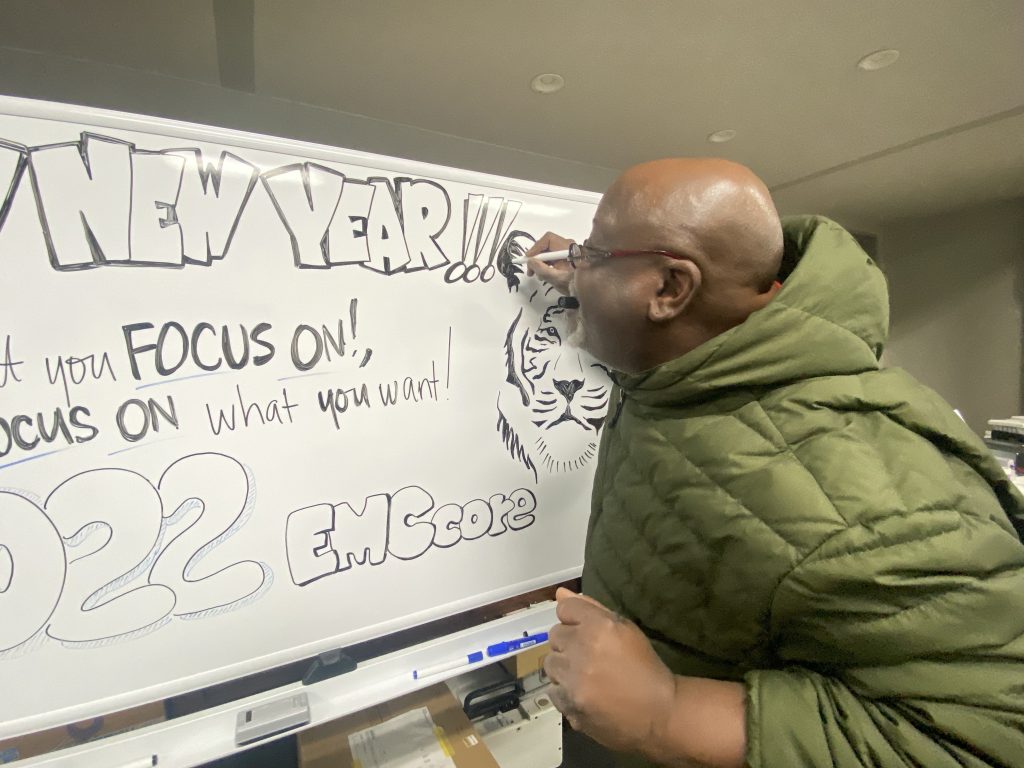 NEW YEAR!!!
you FOCUS ON!,
FOCUS ON what you want!
022 EMCcore